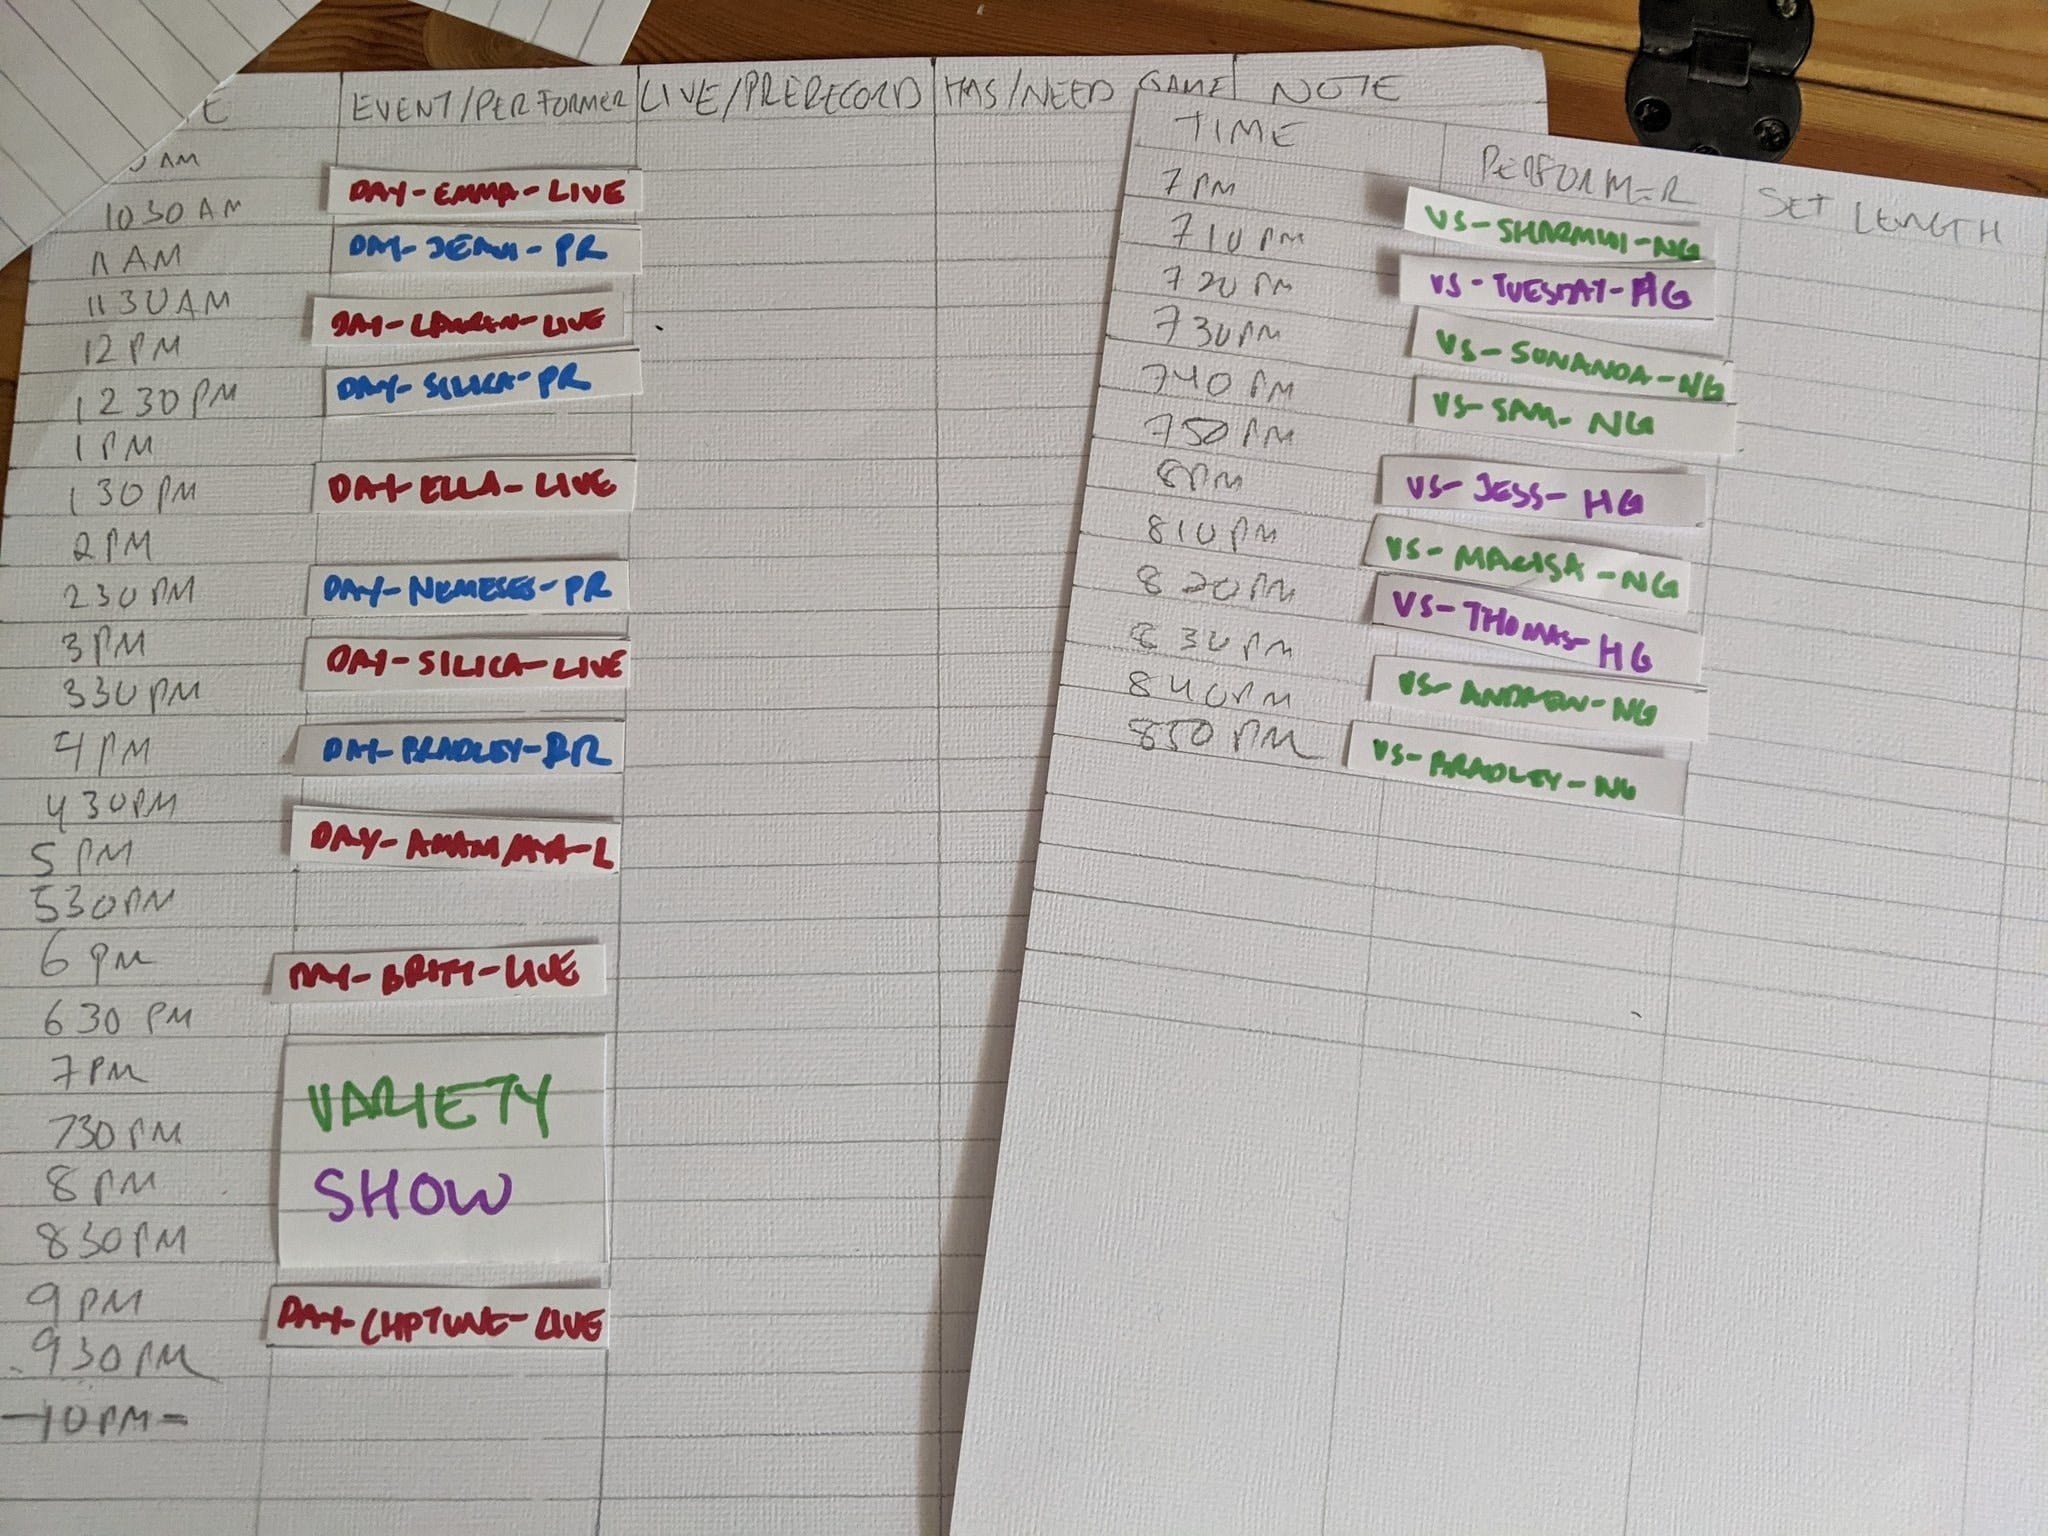 E EVENT/PERFORMER LIVE/PRERECORD HAS/NEED GAME NOTE
AM
1030 AM DAY-EMMA-LIVE
11 AM DAY- PR
1130 AM
12 PM DAY-LAUREN-LIVE
1230 PM DAY-SILICA-PR
1 PM
130 PM DAY-ELLA-LIVE
2 PM
230 PM DAY-NEMESES-PR
3 PM DAY-SILICA-LIVE
330 PM
4 PM DAY-BRADLEY-PR
430 PM
5 PM DAY- L
530 PM
6 PM DAY-BRITY-LIVE
630 PM
7 PM VARIETY
730 PM
8 PM SHOW
830 PM
9 PM DAY-CHPTUNE-LIVE
930 PM
-10 PM-
TIME PERFORMER SET LENGTH
7 PM VS- NG
710 PM
720 PM VS-TUESDAY-HG
730 PM VS- NG
740 PM VS-SAM-NG
750 PM
8 PM VS-JESS-HG
810 PM VS-MARISA-NG
820 PM VS-THOMAS-HG
830 PM
840 PM VS-ANDREW-NG
850 PM VS-BRADLEY-NG